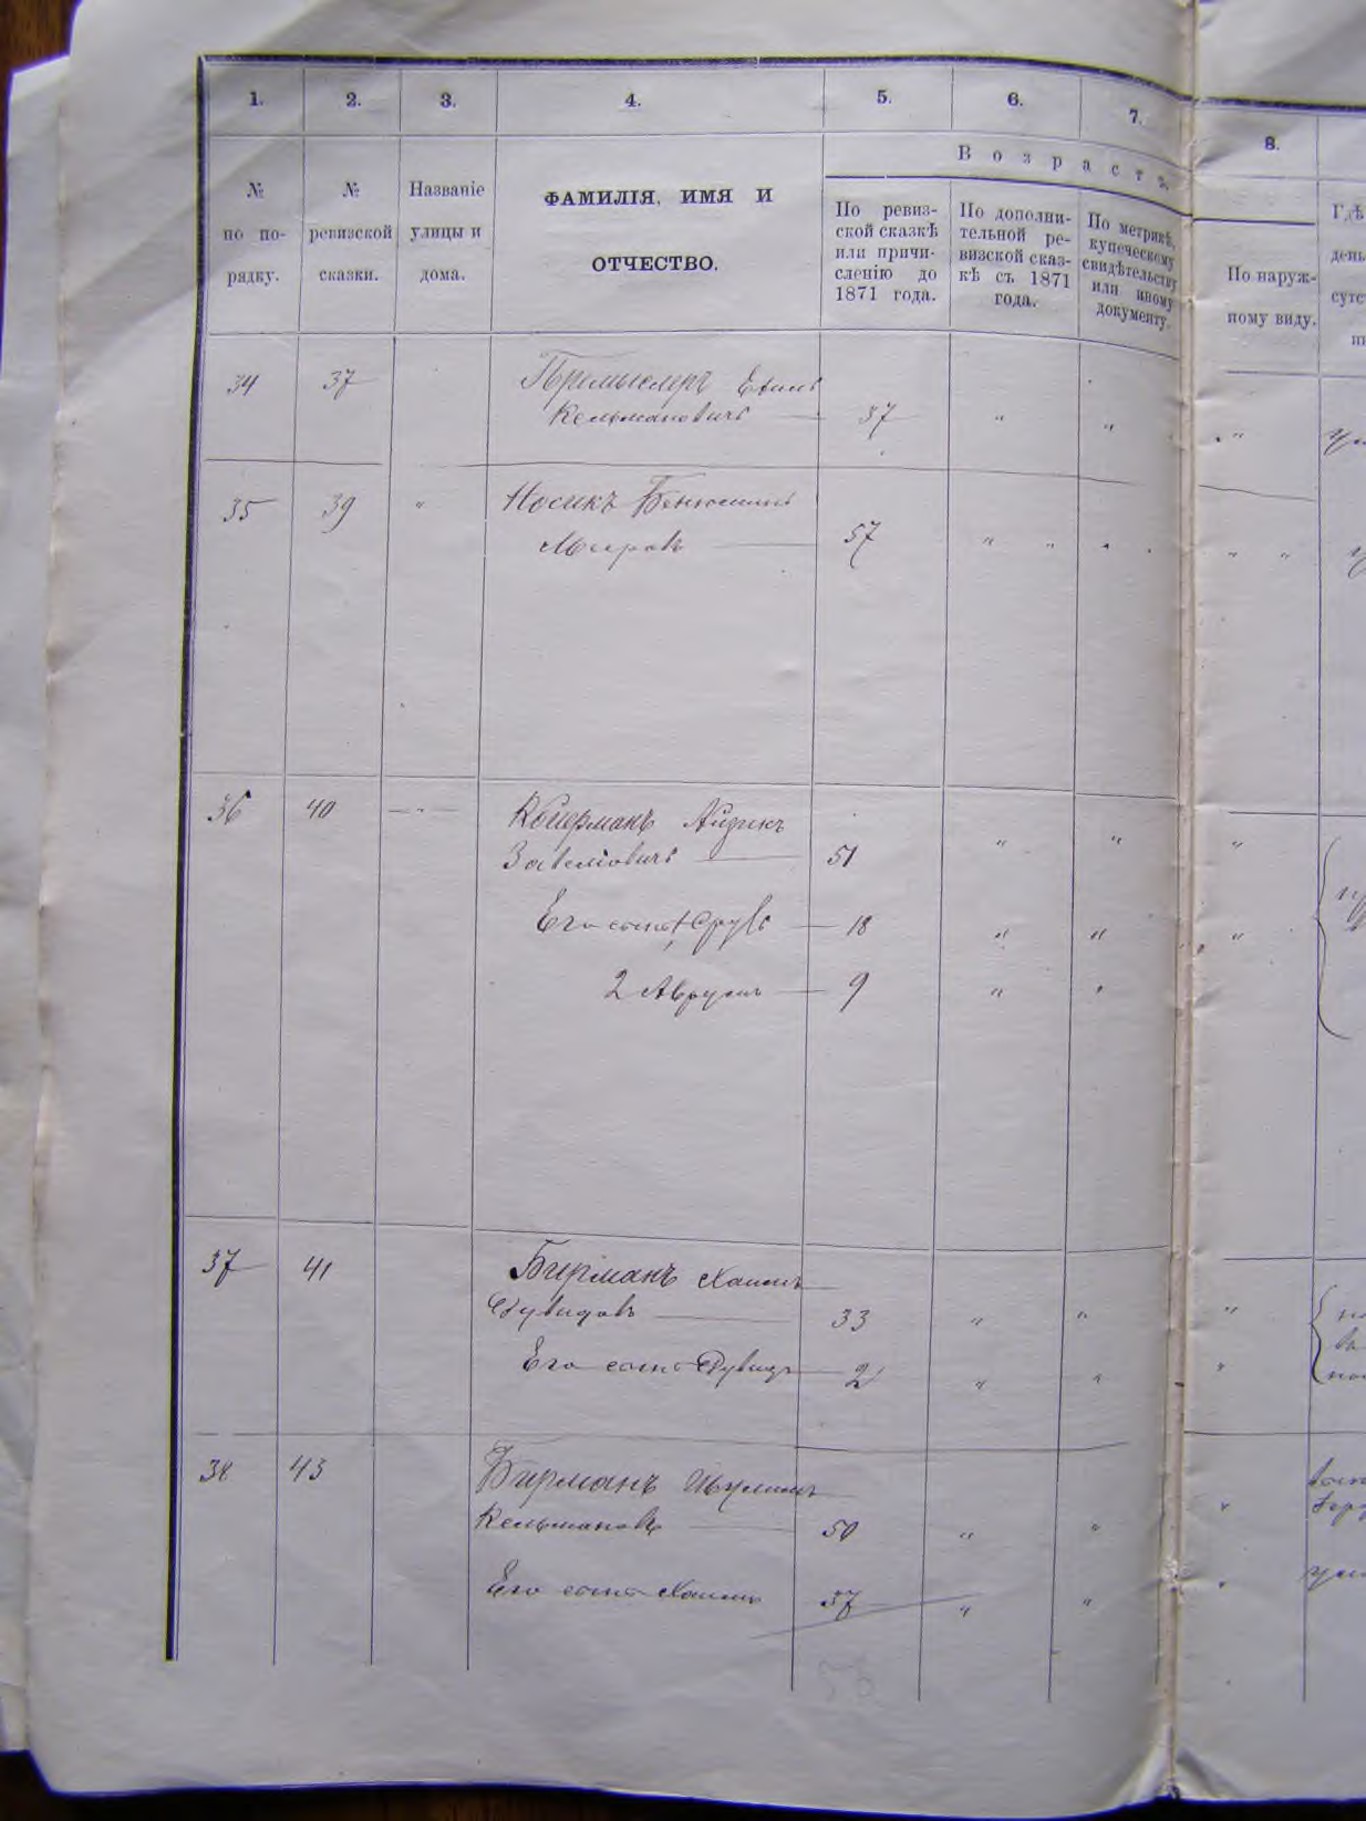 1. 2. 3. 4. 5. 6. 7. 8.
В о з р а с т ъ
№ по по- рядку.
№ ревизской сказки.
Названіе улицы и дома.
ФАМИЛІЯ, ИМЯ И
ОТЧЕСТВО.
По ревиз-
ской сказкѣ
или причи-
сленію до
1871 года.
По дополни-
тельной ре-
визской сказ-
кѣ съ 1871
года.
По метрикѣ,
купеческому
свидѣтельству
или иному
документу.
По наруж-
ному виду.
Гдѣ
день
сутс
34 37 Премыслеръ
Кельмановичъ — 37 " " "
35 39 " Носикъ Бенюминъ
Мееровъ — 57 " " " "
36 40 — " — Койерманъ Айзикъ
Завеліовичъ — 51 " " "
Его сынъ Срувъ — 18 " " "
2 Аврумъ — 9 " "
37 41 Бирманъ Хаимъ
Дувидовъ — 33 " " "
Его сынъ Дувидъ — 2 " " "
38 43 Бирманъ
Кельмановъ — 50 " " "
Его сынъ Хаимъ 37 " " "